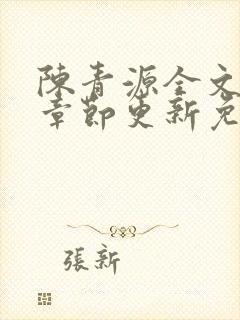 陳青源全文
章節更新免
張新